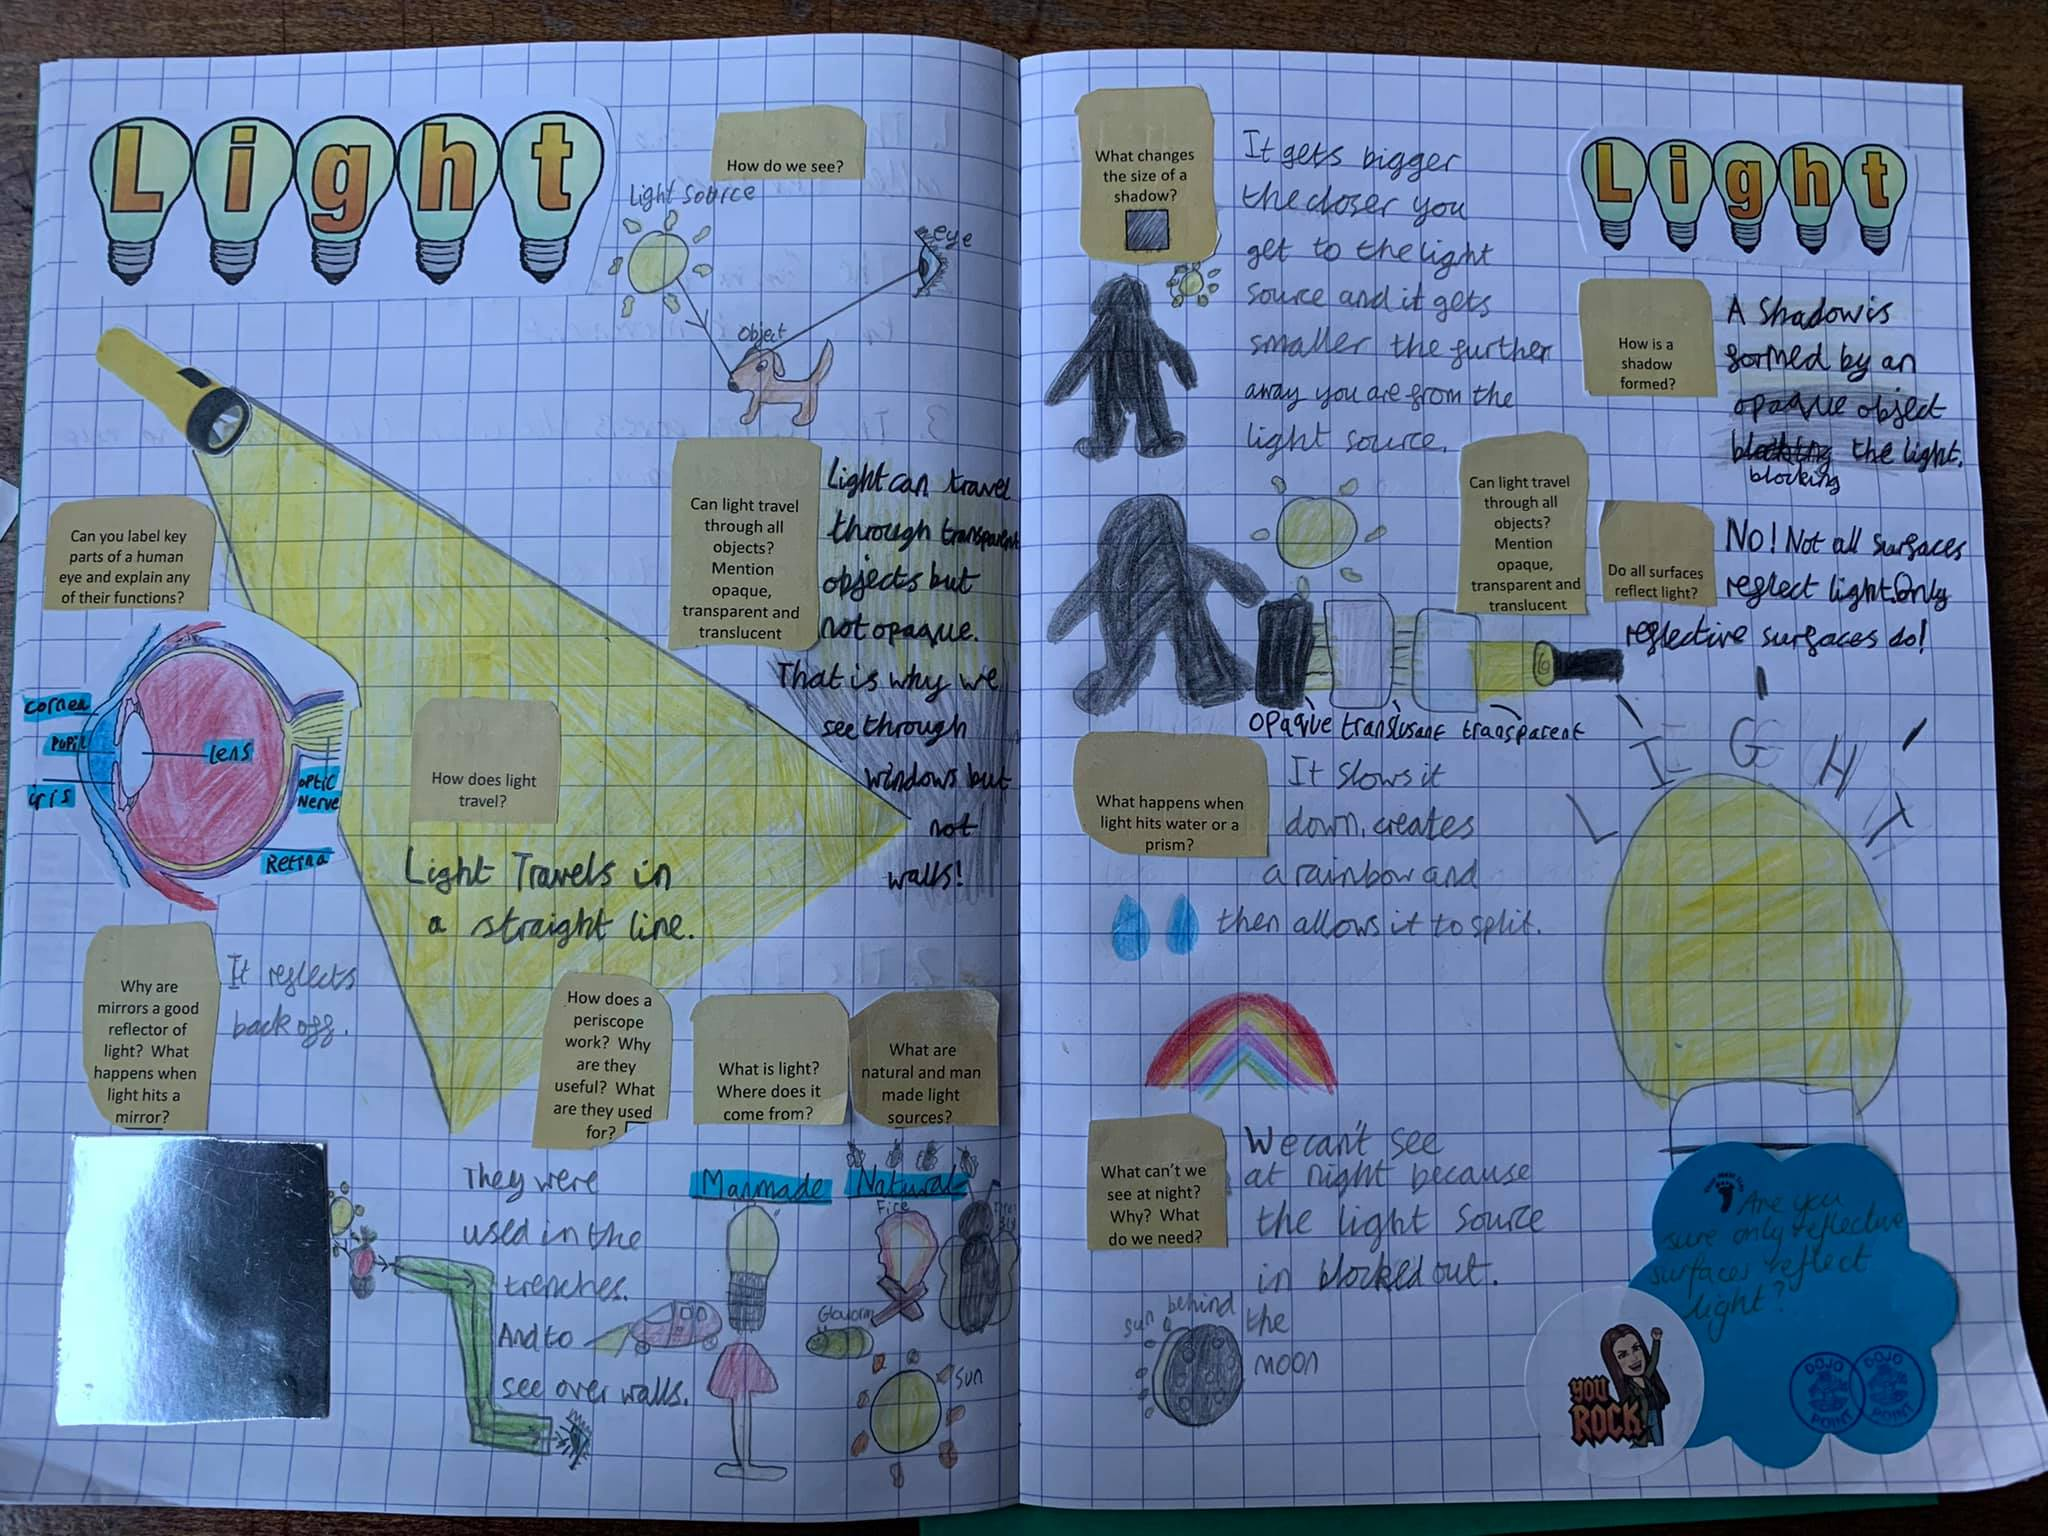 Light
How do we see?
Light source
eye
Object
Can light travel
through all
objects?
Mention
opaque,
transparent and
translucent
Light can travel
through transparent
objects but
not opaque.
That is why we
see through
windows but
not
walls!
Can you label key
parts of a human
eye and explain any
of their functions?
cornea
pupil
iris
Lens
optic
nerve
Retina
How does light
travel?
Light Travels in
a straight line.
Why are
mirrors a good
reflector of
light? What
happens when
light hits a
mirror?
It reflects
back off.
How does a
periscope
work? Why
are they
useful? What
are they used
for?
They were
used in the
trenches.
And to
see over walls.
What is light?
Where does it
come from?
What are
natural and man
made light
sources?
Manmade
Natural
Fire
Sun
What changes
the size of a
shadow?
It gets bigger
the closer you
get to the light
source and it gets
smaller the further
away you are from the
light source.
Light
How is a
shadow
formed?
A Shadow is
formed by an
opaque object
blocking the light.
blocking
Can light travel
through all
objects?
Mention
opaque,
transparent and
translucent
Do all surfaces
reflect light?
No! Not all surfaces
reflect light. Only
reflective surfaces do!
opaque translusant transparent
What happens when
light hits water or a
prism?
It slows it
down, creates
a rainbow and
then allows it to split.
LIGHT
What can't we
see at night?
Why? What
do we need?
We can't see
at night because
the light source
in blocked out.
sun behind
the
moon
Are you
sure only reflective
surfaces reflect
light?
YOU
ROCK
DOJO
POINT
DOJO
POINT